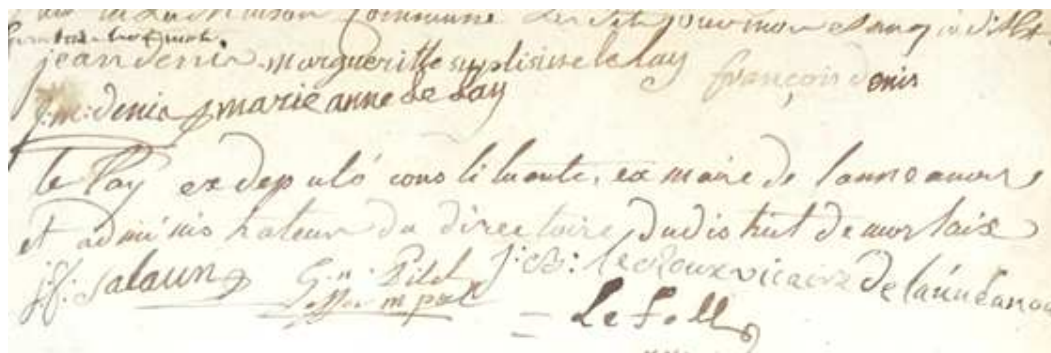 la maison commune les dits jour mois et an
jean denis marguerite simplisine le lay françois denis
j: m: denis marie anne Le Lay
le Lay ex deputé constituante, ex maire de lanneanou
et administrateur du directoire du district de morlaix
j: f: Salaun G: n: J: B: le Roux vicaire de lannéanou
Le foll